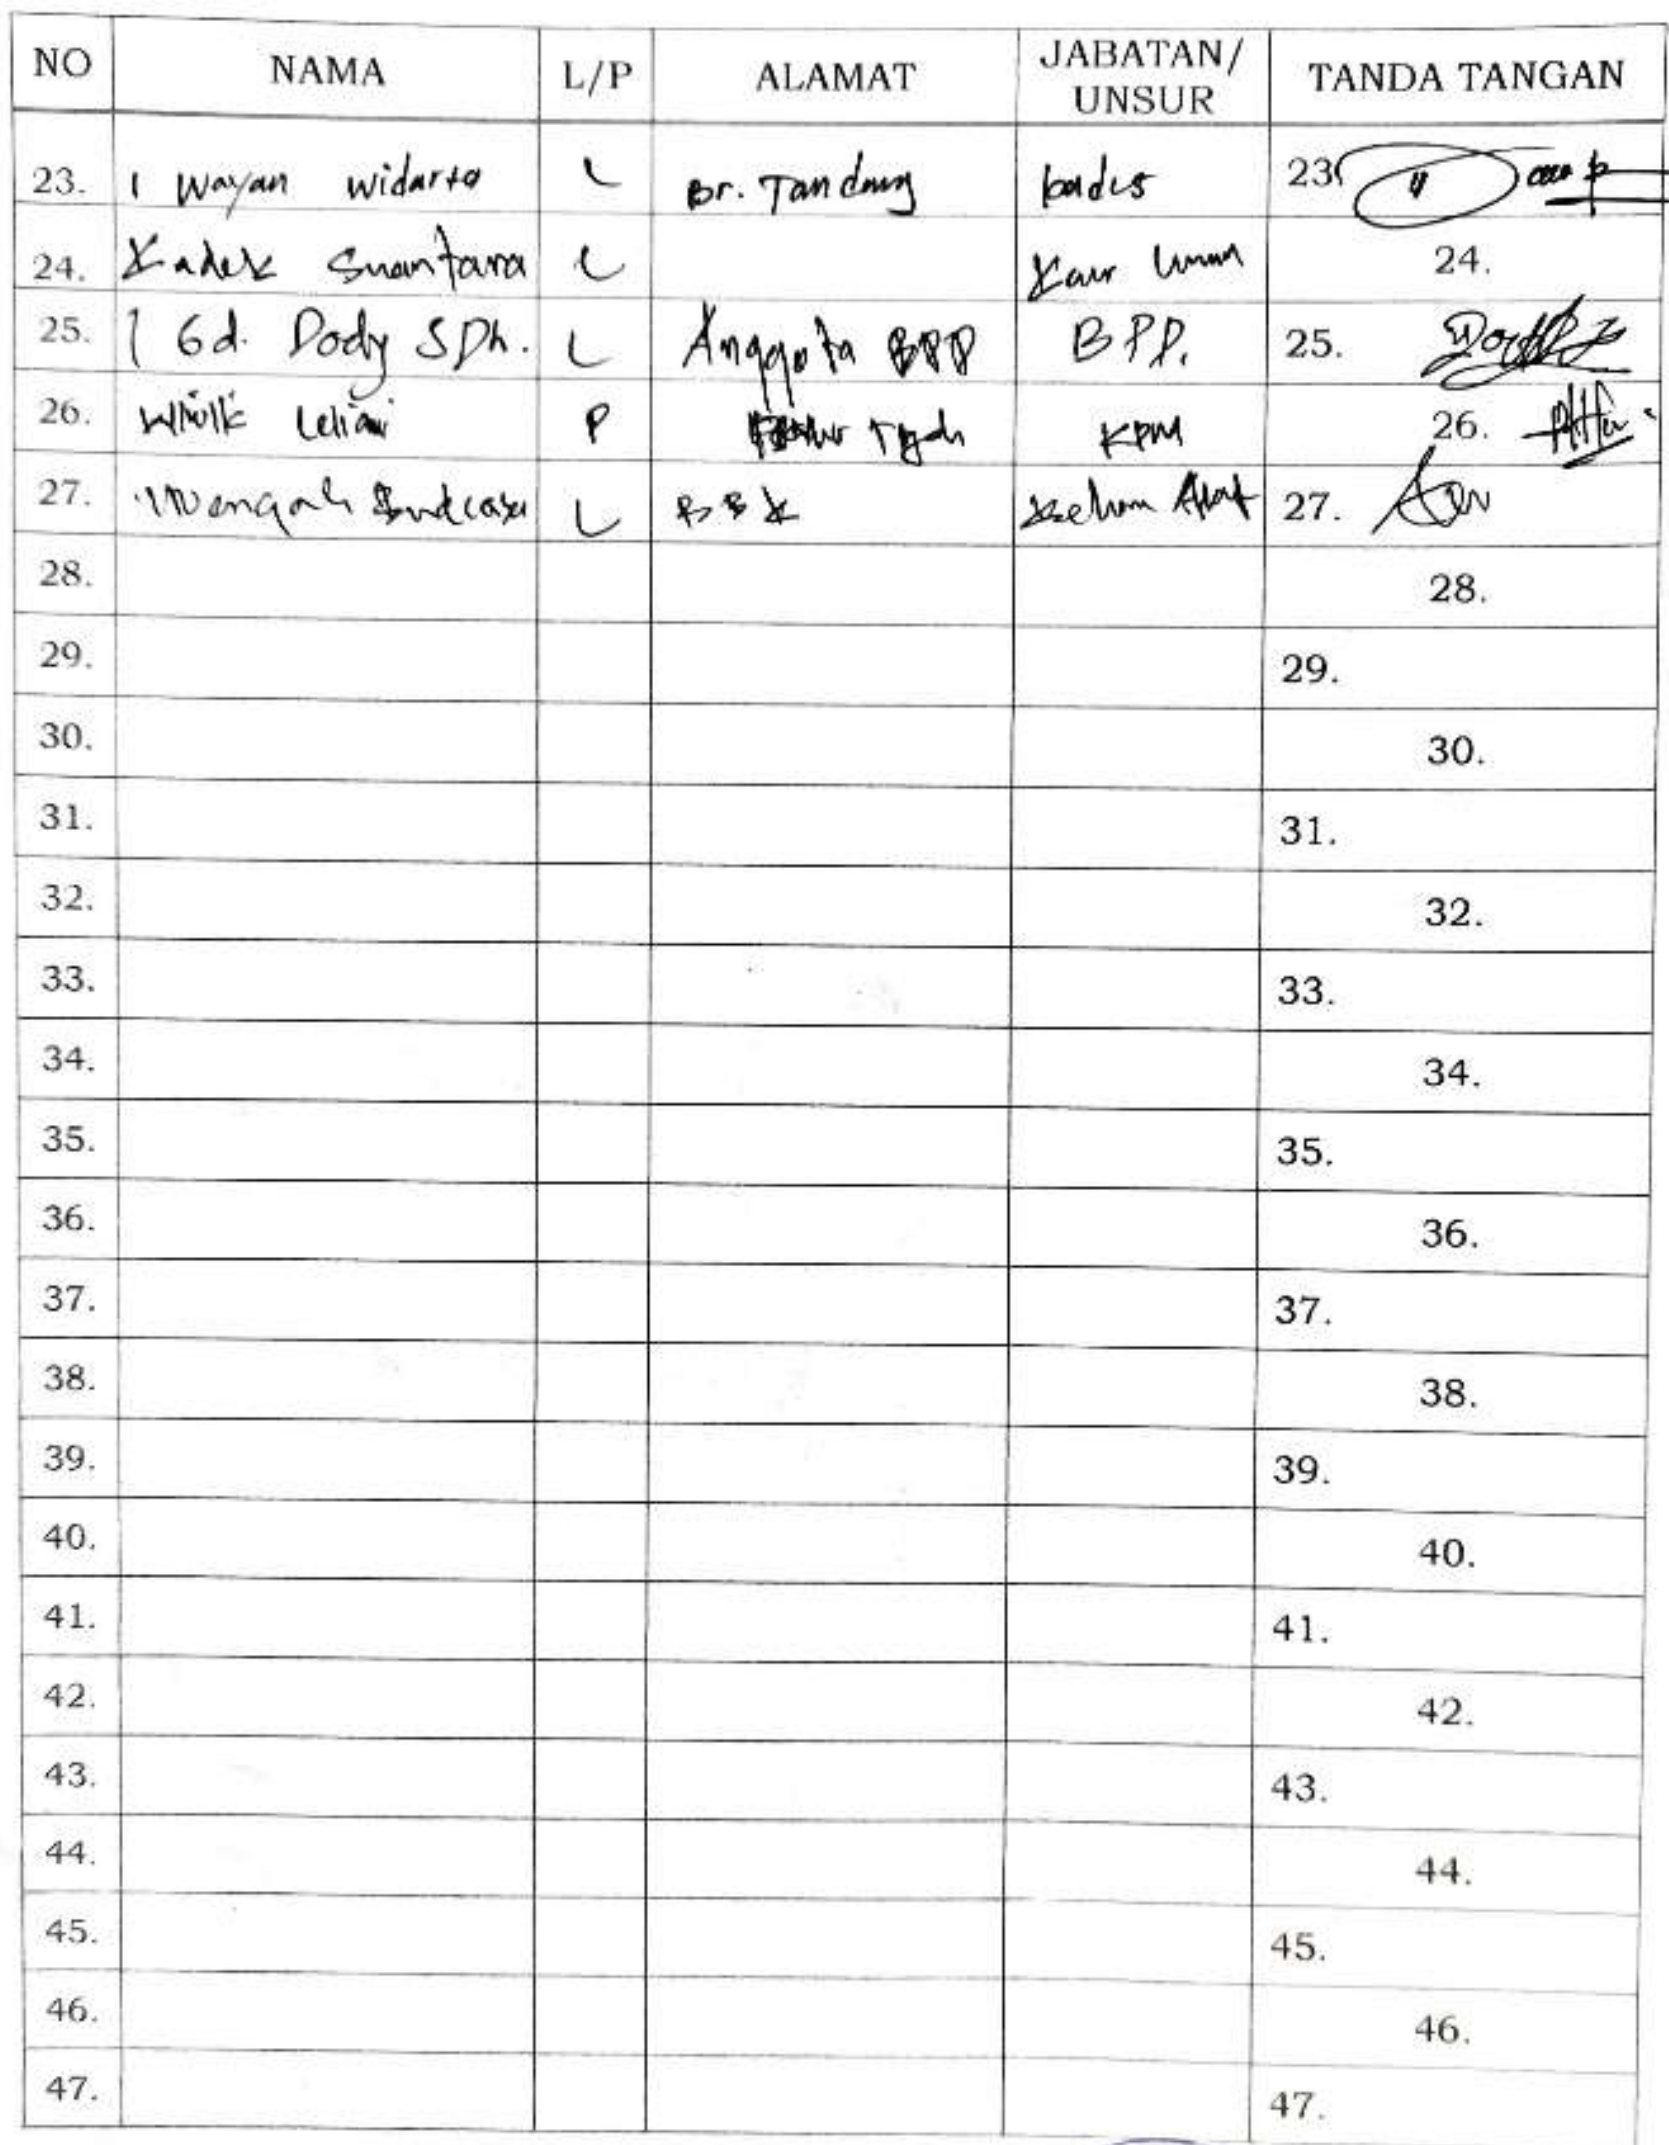 NO NAMA L/P ALAMAT JABATAN/ UNSUR TANDA TANGAN
23. I Wayan Widarta L Br. Tandang kades 23.
24. Kadek Suantara L Kaur Umum 24.
25. I Gd. Dody SDh. L Anggota BPD BPD. 25.
26. Leliani P KPM 26.
27. I Nengah L BBK 27.
28. 28.
29. 29.
30. 30.
31. 31.
32. 32.
33. 33.
34. 34.
35. 35.
36. 36.
37. 37.
38. 38.
39. 39.
40. 40.
41. 41.
42. 42.
43. 43.
44. 44.
45. 45.
46. 46.
47. 47.